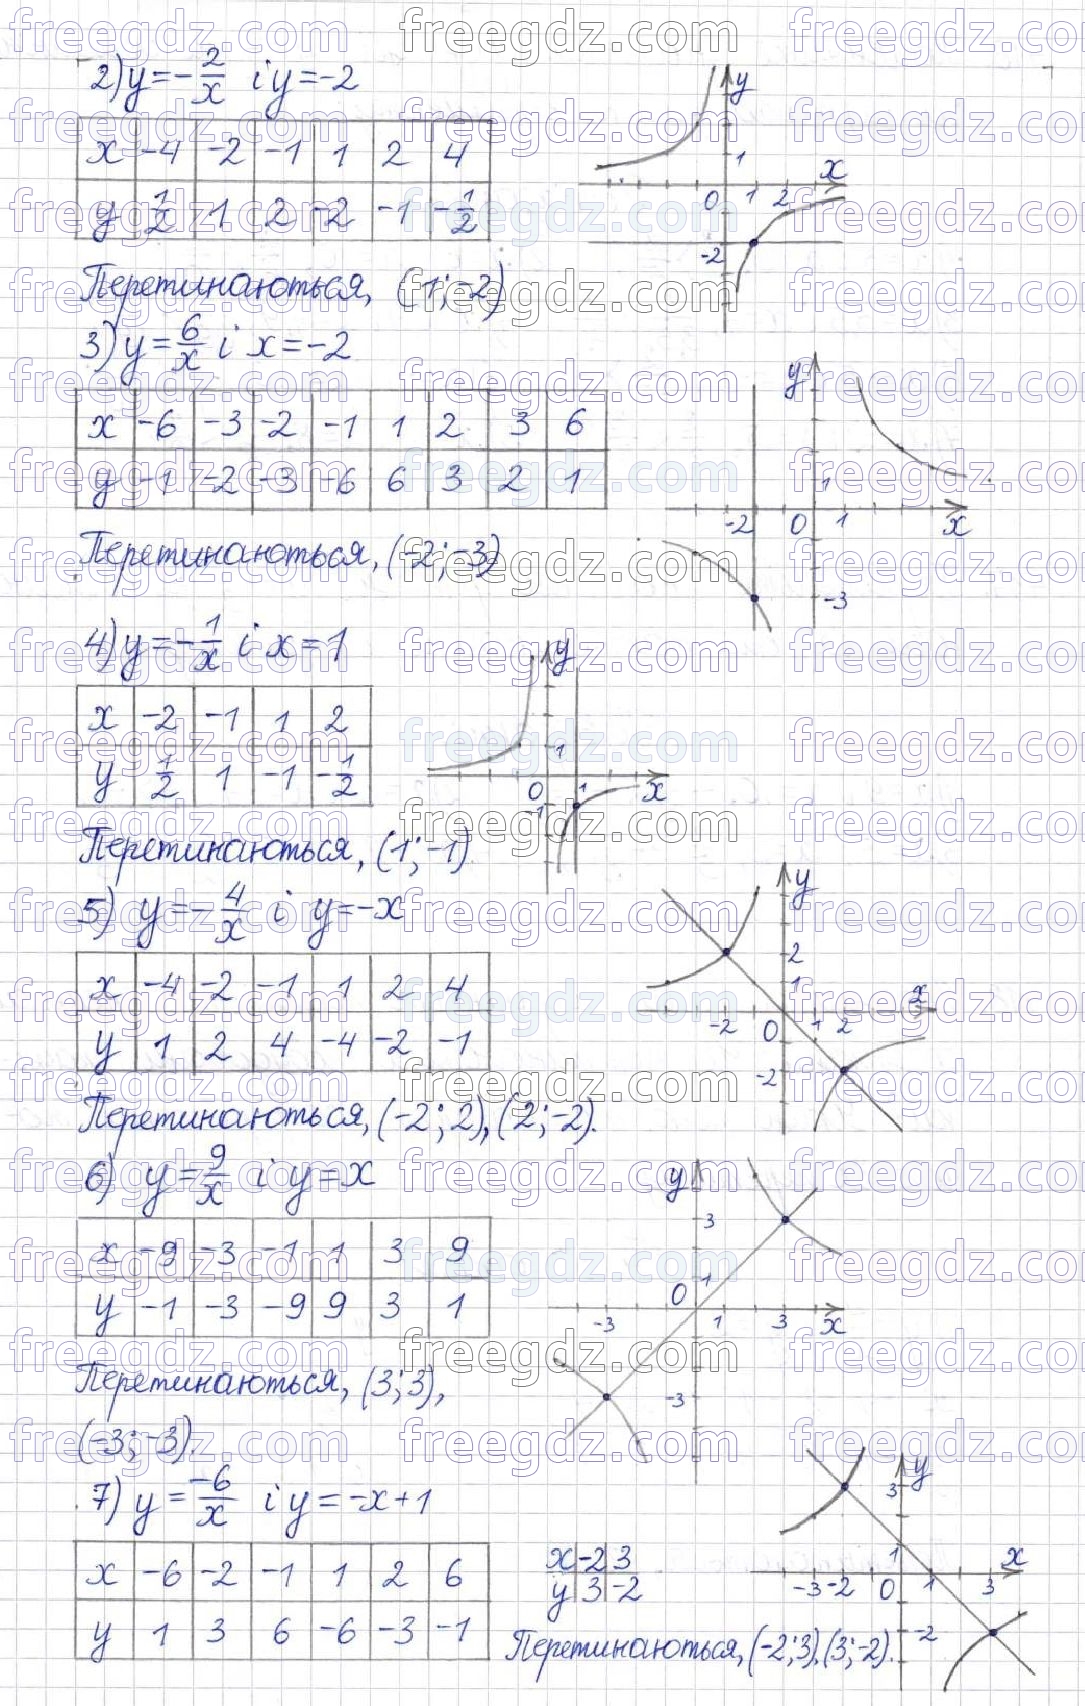 2) y = -2/x і y = -2
x -4 -2 -1 1 2 4
y 1/2 1 2 -2 -1 -1/2
y
1
x
0 1 2
-2
Перетинаються, (1; -2)
3) y = 6/x і x = -2
x -6 -3 -2 -1 1 2 3 6
y -1 -2 -3 -6 6 3 2 1
y
1
-2 0 1 x
-3
Перетинаються, (-2; -3)
4) y = -1/x і x = 1
x -2 -1 1 2
y 1/2 1 -1 -1/2
y
1
0 1 x
-1
Перетинаються, (1; -1)
5) y = -4/x і y = -x
x -4 -2 -1 1 2 4
y 1 2 4 -4 -2 -1
y
2
1
x
-2 0 1 2
-2
Перетинаються, (-2; 2), (2; -2).
6) y = 9/x і y = x
x -9 -3 -1 1 3 9
y -1 -3 -9 9 3 1
y
3
1
0
-3 1 3 x
-3
Перетинаються, (3; 3),
(-3; -3).
7) y = -6/x і y = -x + 1
x -6 -2 -1 1 2 6
y 1 3 6 -6 -3 -1
x -2 3
y 3 -2
y
3
1 x
-3 -2 0 1 3
-2
Перетинаються, (-2; 3), (3; -2).
freegdz.com